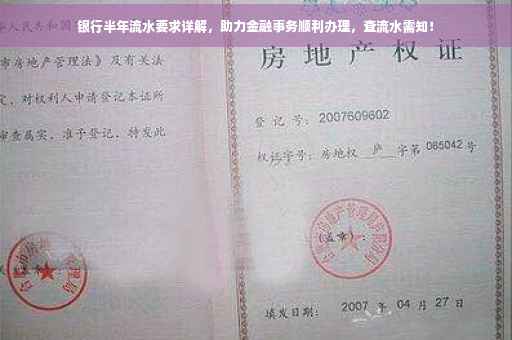 银行半年流水要求详解，助力金融事务顺利办理，查流水需知！
人民共和国
市房地产管理法》及有关法
定，对权利人申请登记本证所
审查属实，准予登记，特发此
房地产权证
登记号：2007609602
权证字号：房地权 庐 字第 085042 号
(盖章)：
填发日期：2007 年 04 月 27 日